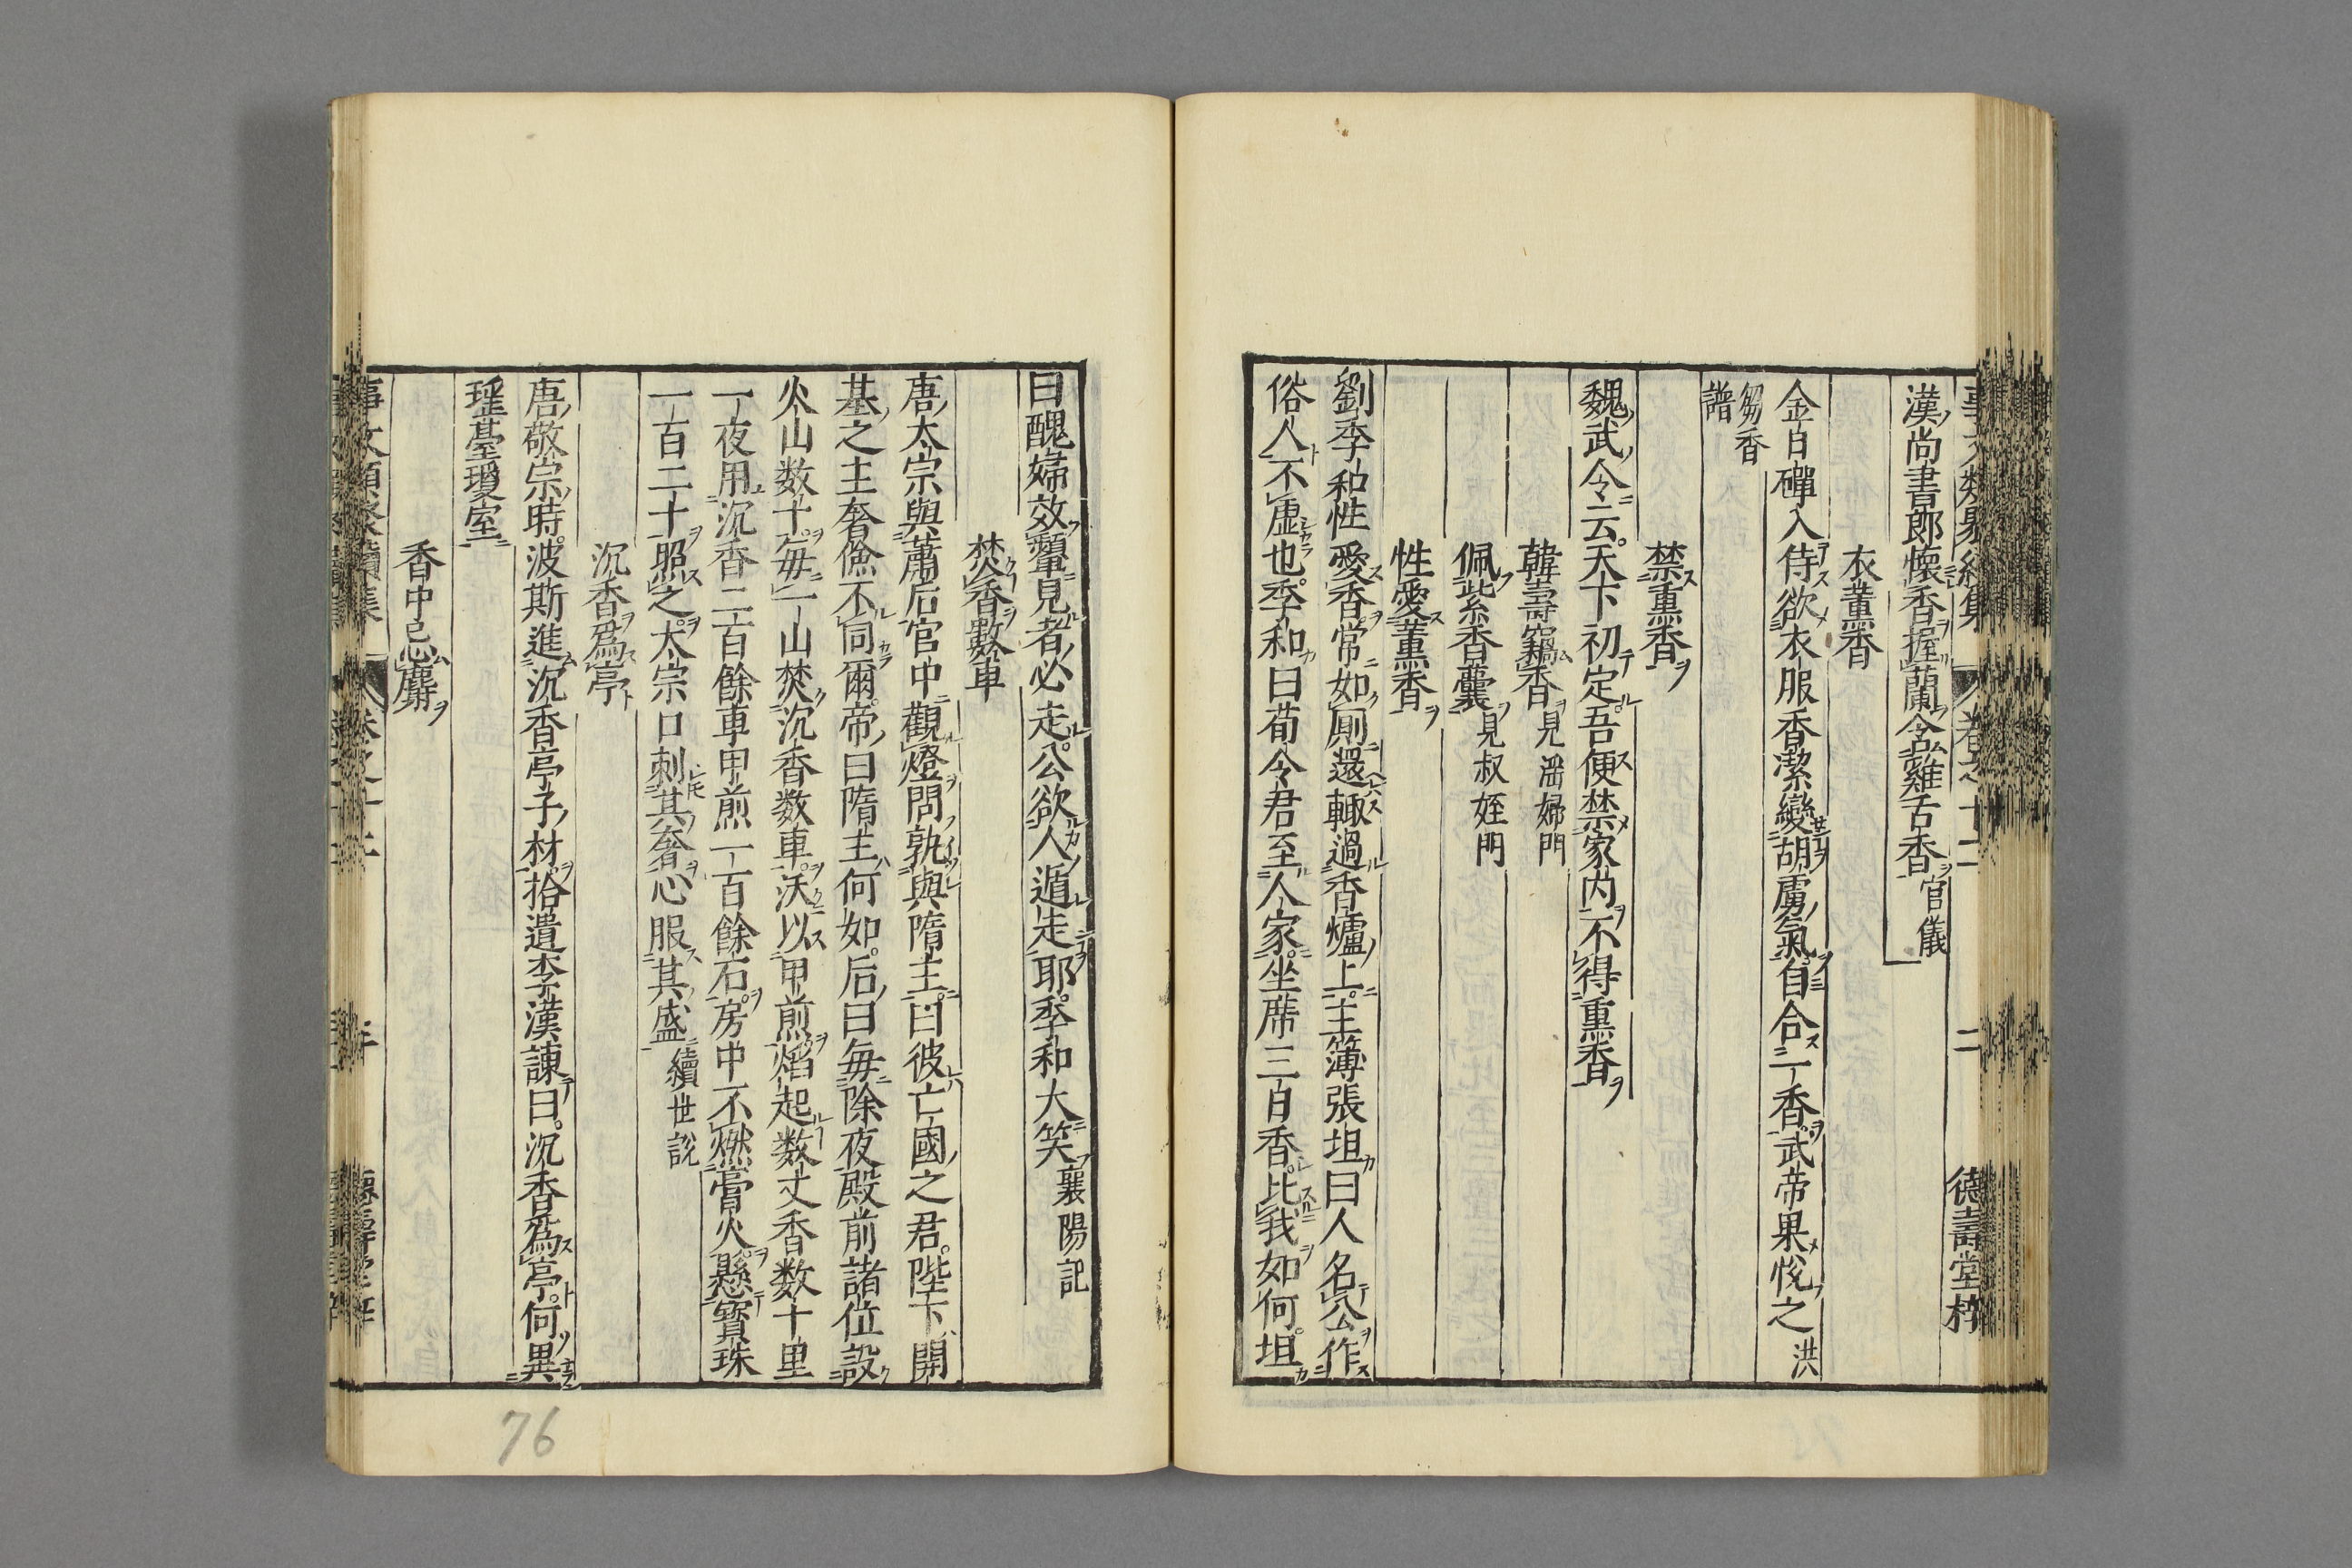 事文類聚續集 卷之十二 二 德壽堂梓
漢尚書郎懷香握蘭含雞舌香官儀
衣薰香
金日磾入侍欲衣服香潔變胡虜氣自合一香武帝果悅之洪
芻香
譜
禁熏香
魏武令云天下初定吾便禁家内不得熏香
韓壽竊香見滛婦門
佩紫香囊見叔姪門
性愛薰香
劉季和性愛香常如厠還輙過香爐上主簿張坦曰人名公作
俗人不虛也季和曰荀令君至人家坐席三日香比我如何坦
曰醜婦效顰見者必走公欲人遁走耶季和大笑襄陽記
焚香數車
唐太宗與蕭后官中觀燈問孰與隋主曰彼亡國之君陛下開
基之主奢儉不同爾帝曰隋主何如后曰每除夜殿前諸位設
火山数十每一山焚沉香数車沃以甲煎焰起数丈香数十里
一夜用沉香二百餘車甲煎一百餘石房中不燃膏火懸寳珠
一百二十照之太宗口刺其奢心服其盛續世說
沉香爲亭
唐敬宗時波斯進沉香亭子材拾遺李漢諫曰沉香爲亭何異
瑶臺瓊室
香中忌麝
76